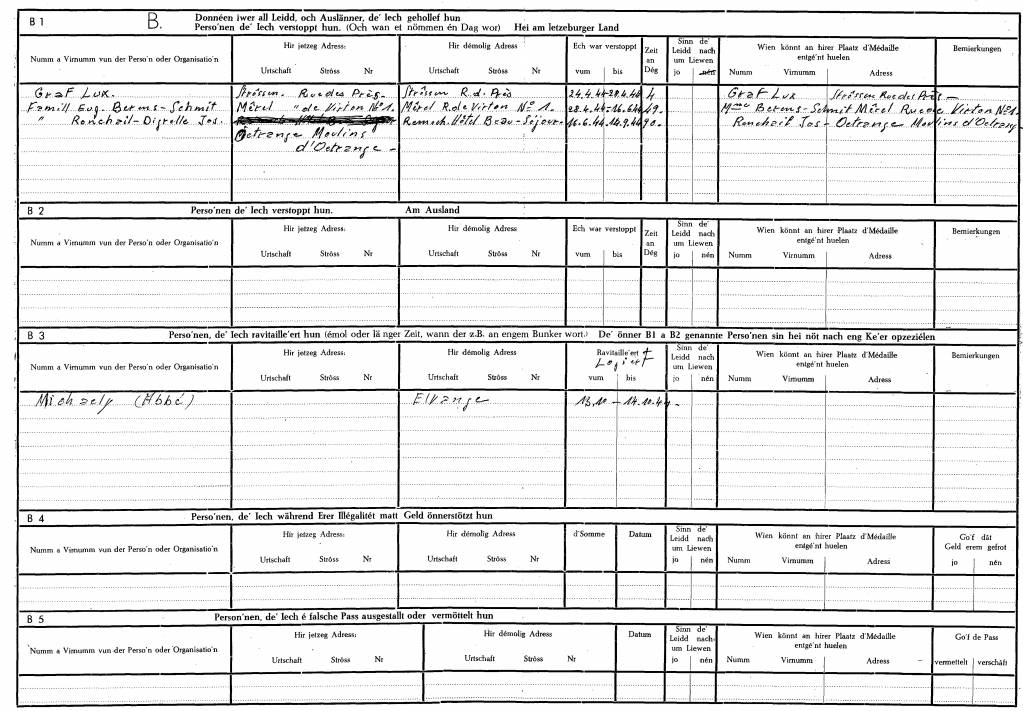 B 1 B. Donnéen iwer all Leidd, och Auslänner, de' Iech gehollef hun
Perso'nen de' Iech verstoppt hun. (Och wan et nömmen én Dag wor) Hei am letzeburger Land
Numm a Virnumm vun der Perso'n oder Organisatio'n
Hir jetzeg Adress:
Urtschaft Ströss Nr
Hir démolig Adress
Urtschaft Ströss Nr
Ech war verstoppt
vum bis
Zeit an Dég
Sinn de' Leidd nach um Liewen
jo nén
Wien könnt an hirer Plaatz d'Médaille entgé'nt huelen
Numm Virnumm Adress
Bemierkungen
Graf Lux. Strössen. Rue des Près- Strössen R.d. Près 24.4.44-28.4.44 4 Graf Lux Strössen Rue des Près -
Famill Eug. Berms-Schmit Mërel " de Virton No 1. Mërel R. de Virton No 1. 28.4.44-16.6.44 49. Mme Berms-Schmit Mërel Rue de Virton No 1.
" Jos. Remech. Hôtel Beau-Séjour- 16.6.44-14.9.44 90. Jos- Oetrange Moulins d'Oetrange
Oetrange Moulins
d'Oetrange -
B 2 Perso'nen de' Iech verstoppt hun. Am Ausland
Numm a Virnumm vun der Perso'n oder Organisatio'n
Hir jetzeg Adress:
Urtschaft Ströss Nr
Hir démolig Adress
Urtschaft Ströss Nr
Ech war verstoppt
vum bis
Zeit an Dég
Sinn de' Leidd nach um Liewen
jo nén
Wien könnt an hirer Plaatz d'Médaille entgé'nt huelen
Numm Virnumm Adress
Bemierkungen
B 3 Perso'nen, de' Iech ravitaille'ert hun (émol oder lä nger Zeit, wann der z.B. an engem Bunker wort.) De' önner B1 a B2 genannte Perso'nen sin hei nöt nach eng Ke'er opzeziélen
Numm a Virnumm vun der Perso'n oder Organisatio'n
Hir jetzeg Adress:
Urtschaft Ströss Nr
Hir démolig Adress
Urtschaft Ströss Nr
Ravitaille'ert +
Logiert
vum bis
Sinn de' Leidd nach um Liewen
jo nén
Wien könnt an hirer Plaatz d'Médaille entgé'nt huelen
Numm Virnumm Adress
Bemierkungen
Michaely (Abbé) Elvange 13.10 - 14.10.44.
B 4 Perso'nen, de' Iech während Erer Illégalitét matt Geld önnerstötzt hun
Numm a Virnumm vun der Perso'n oder Organisatio'n
Hir jetzeg Adress:
Urtschaft Ströss Nr
Hir démolig Adress
Urtschaft Ströss Nr
d'Somme
Datum
Sinn de' Leidd nach um Liewen
jo nén
Wien könnt an hirer Plaatz d'Médaille entgé'nt huelen
Numm Virnumm Adress
Go'f dât Geld erem gefrot
jo nén
B 5 Person'nen, de' Iech é falsche Pass ausgestallt oder vermöttelt hun
Numm a Virnumm vun der Perso'n oder Organisatio'n
Hir jetzeg Adress:
Urtschaft Ströss Nr
Hir démolig Adress
Urtschaft Ströss Nr
Datum
Sinn de' Leidd nach um Liewen
jo nén
Wien könnt an hirer Plaatz d'Médaille entgé'nt huelen
Numm Virnumm Adress
Go'f de Pass
vermettelt verschâft